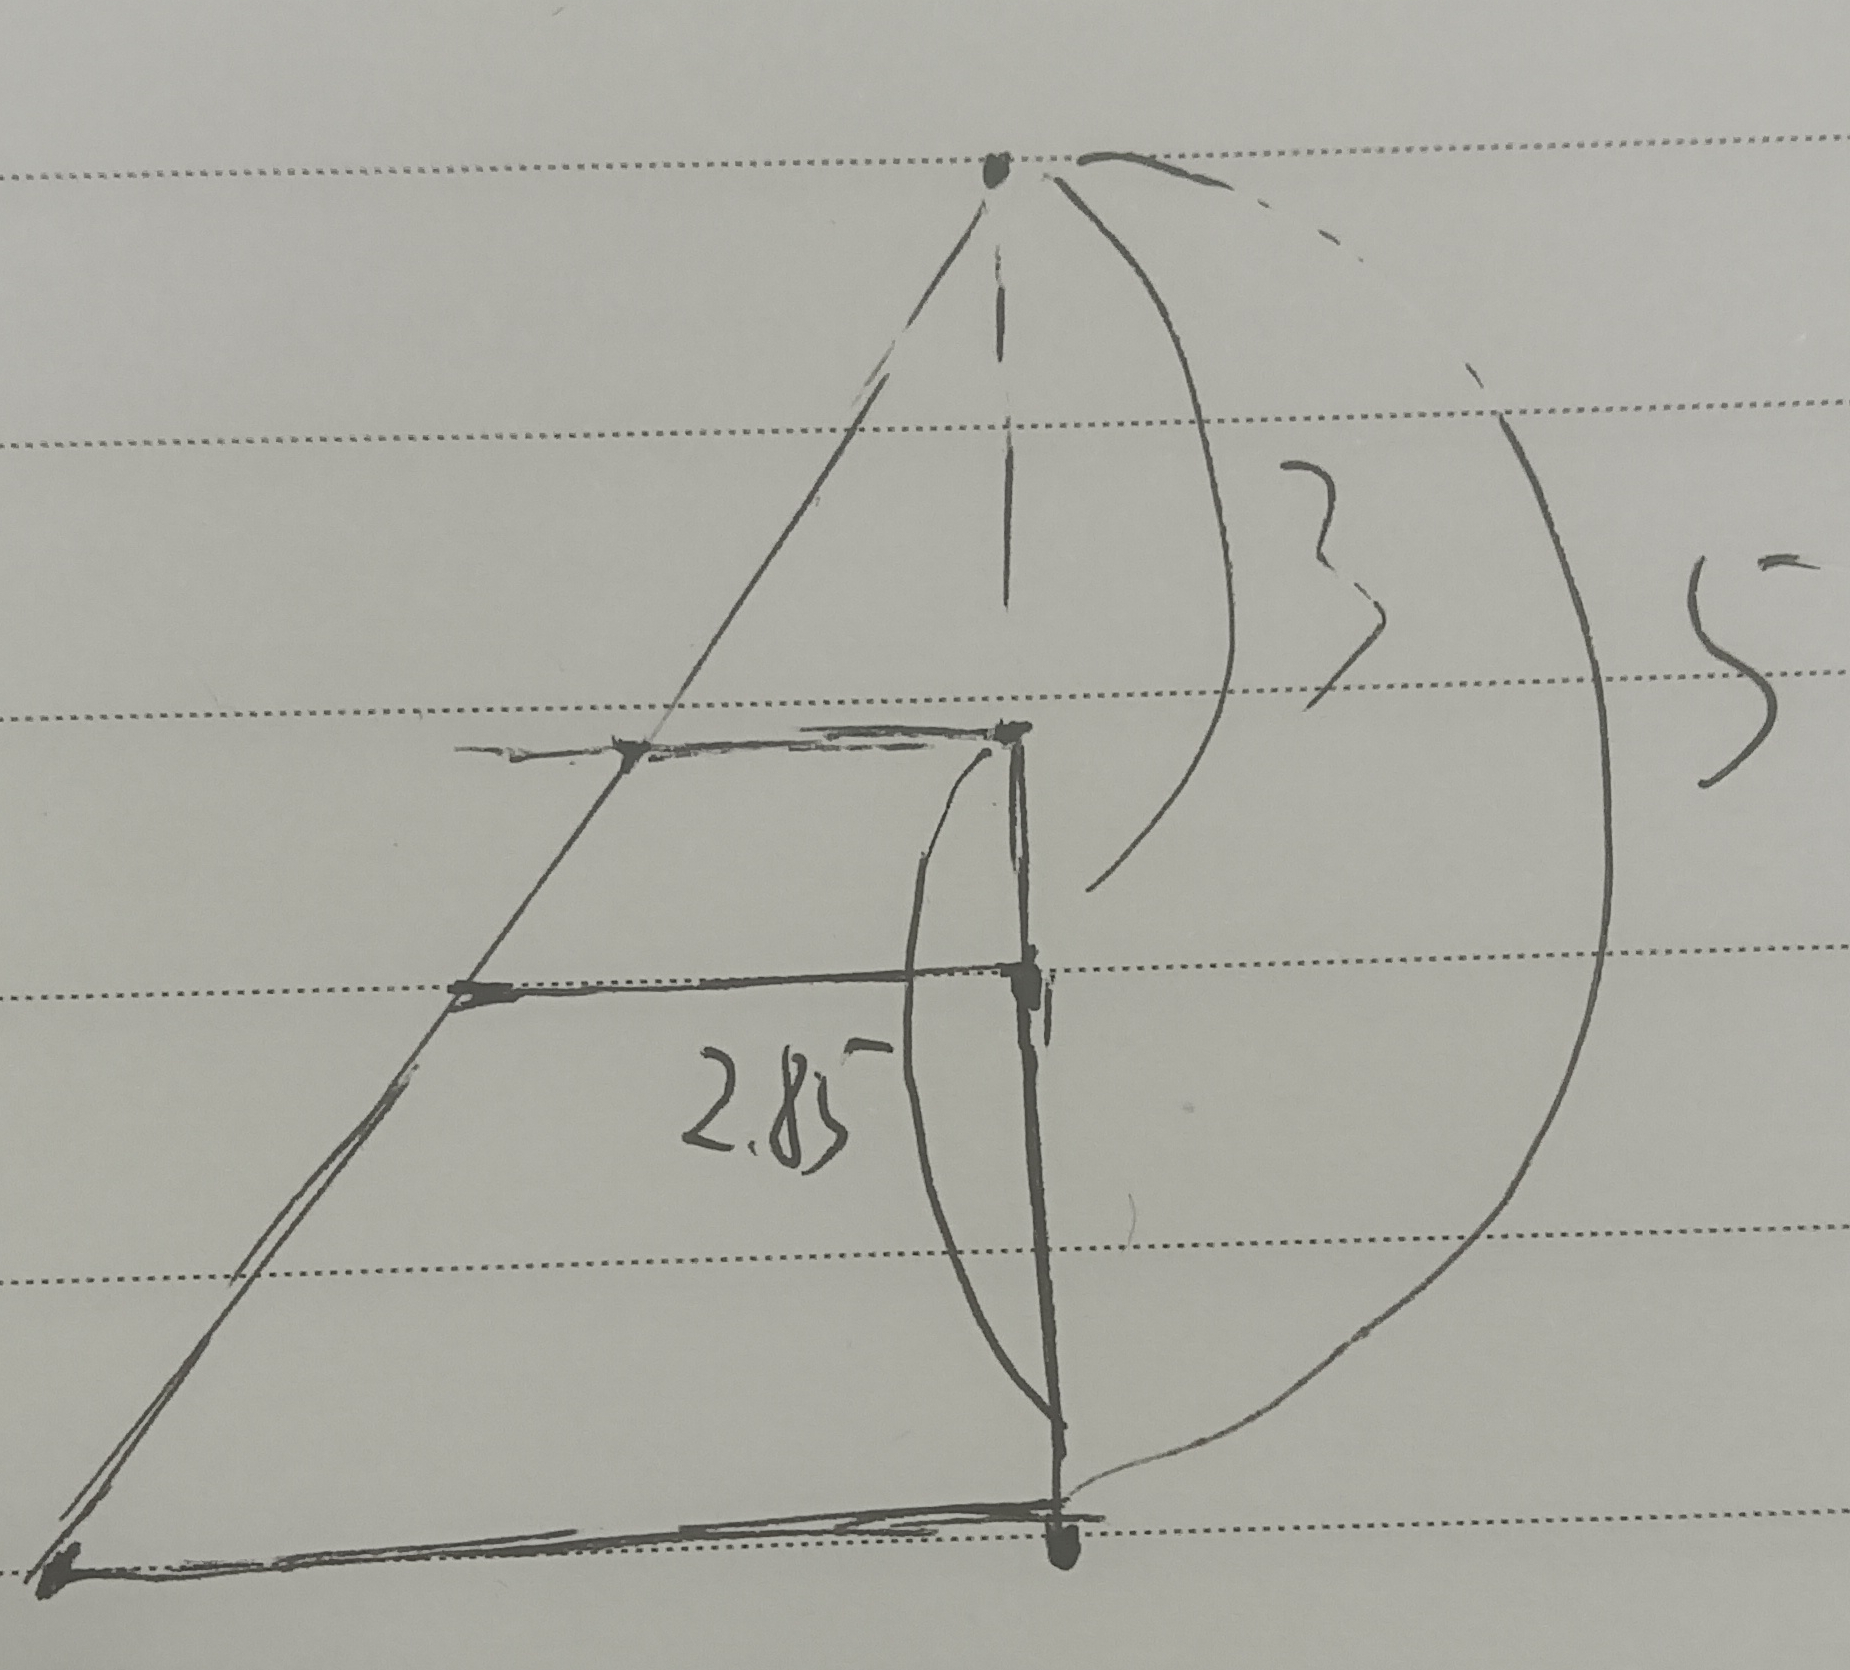 3
5
2.85